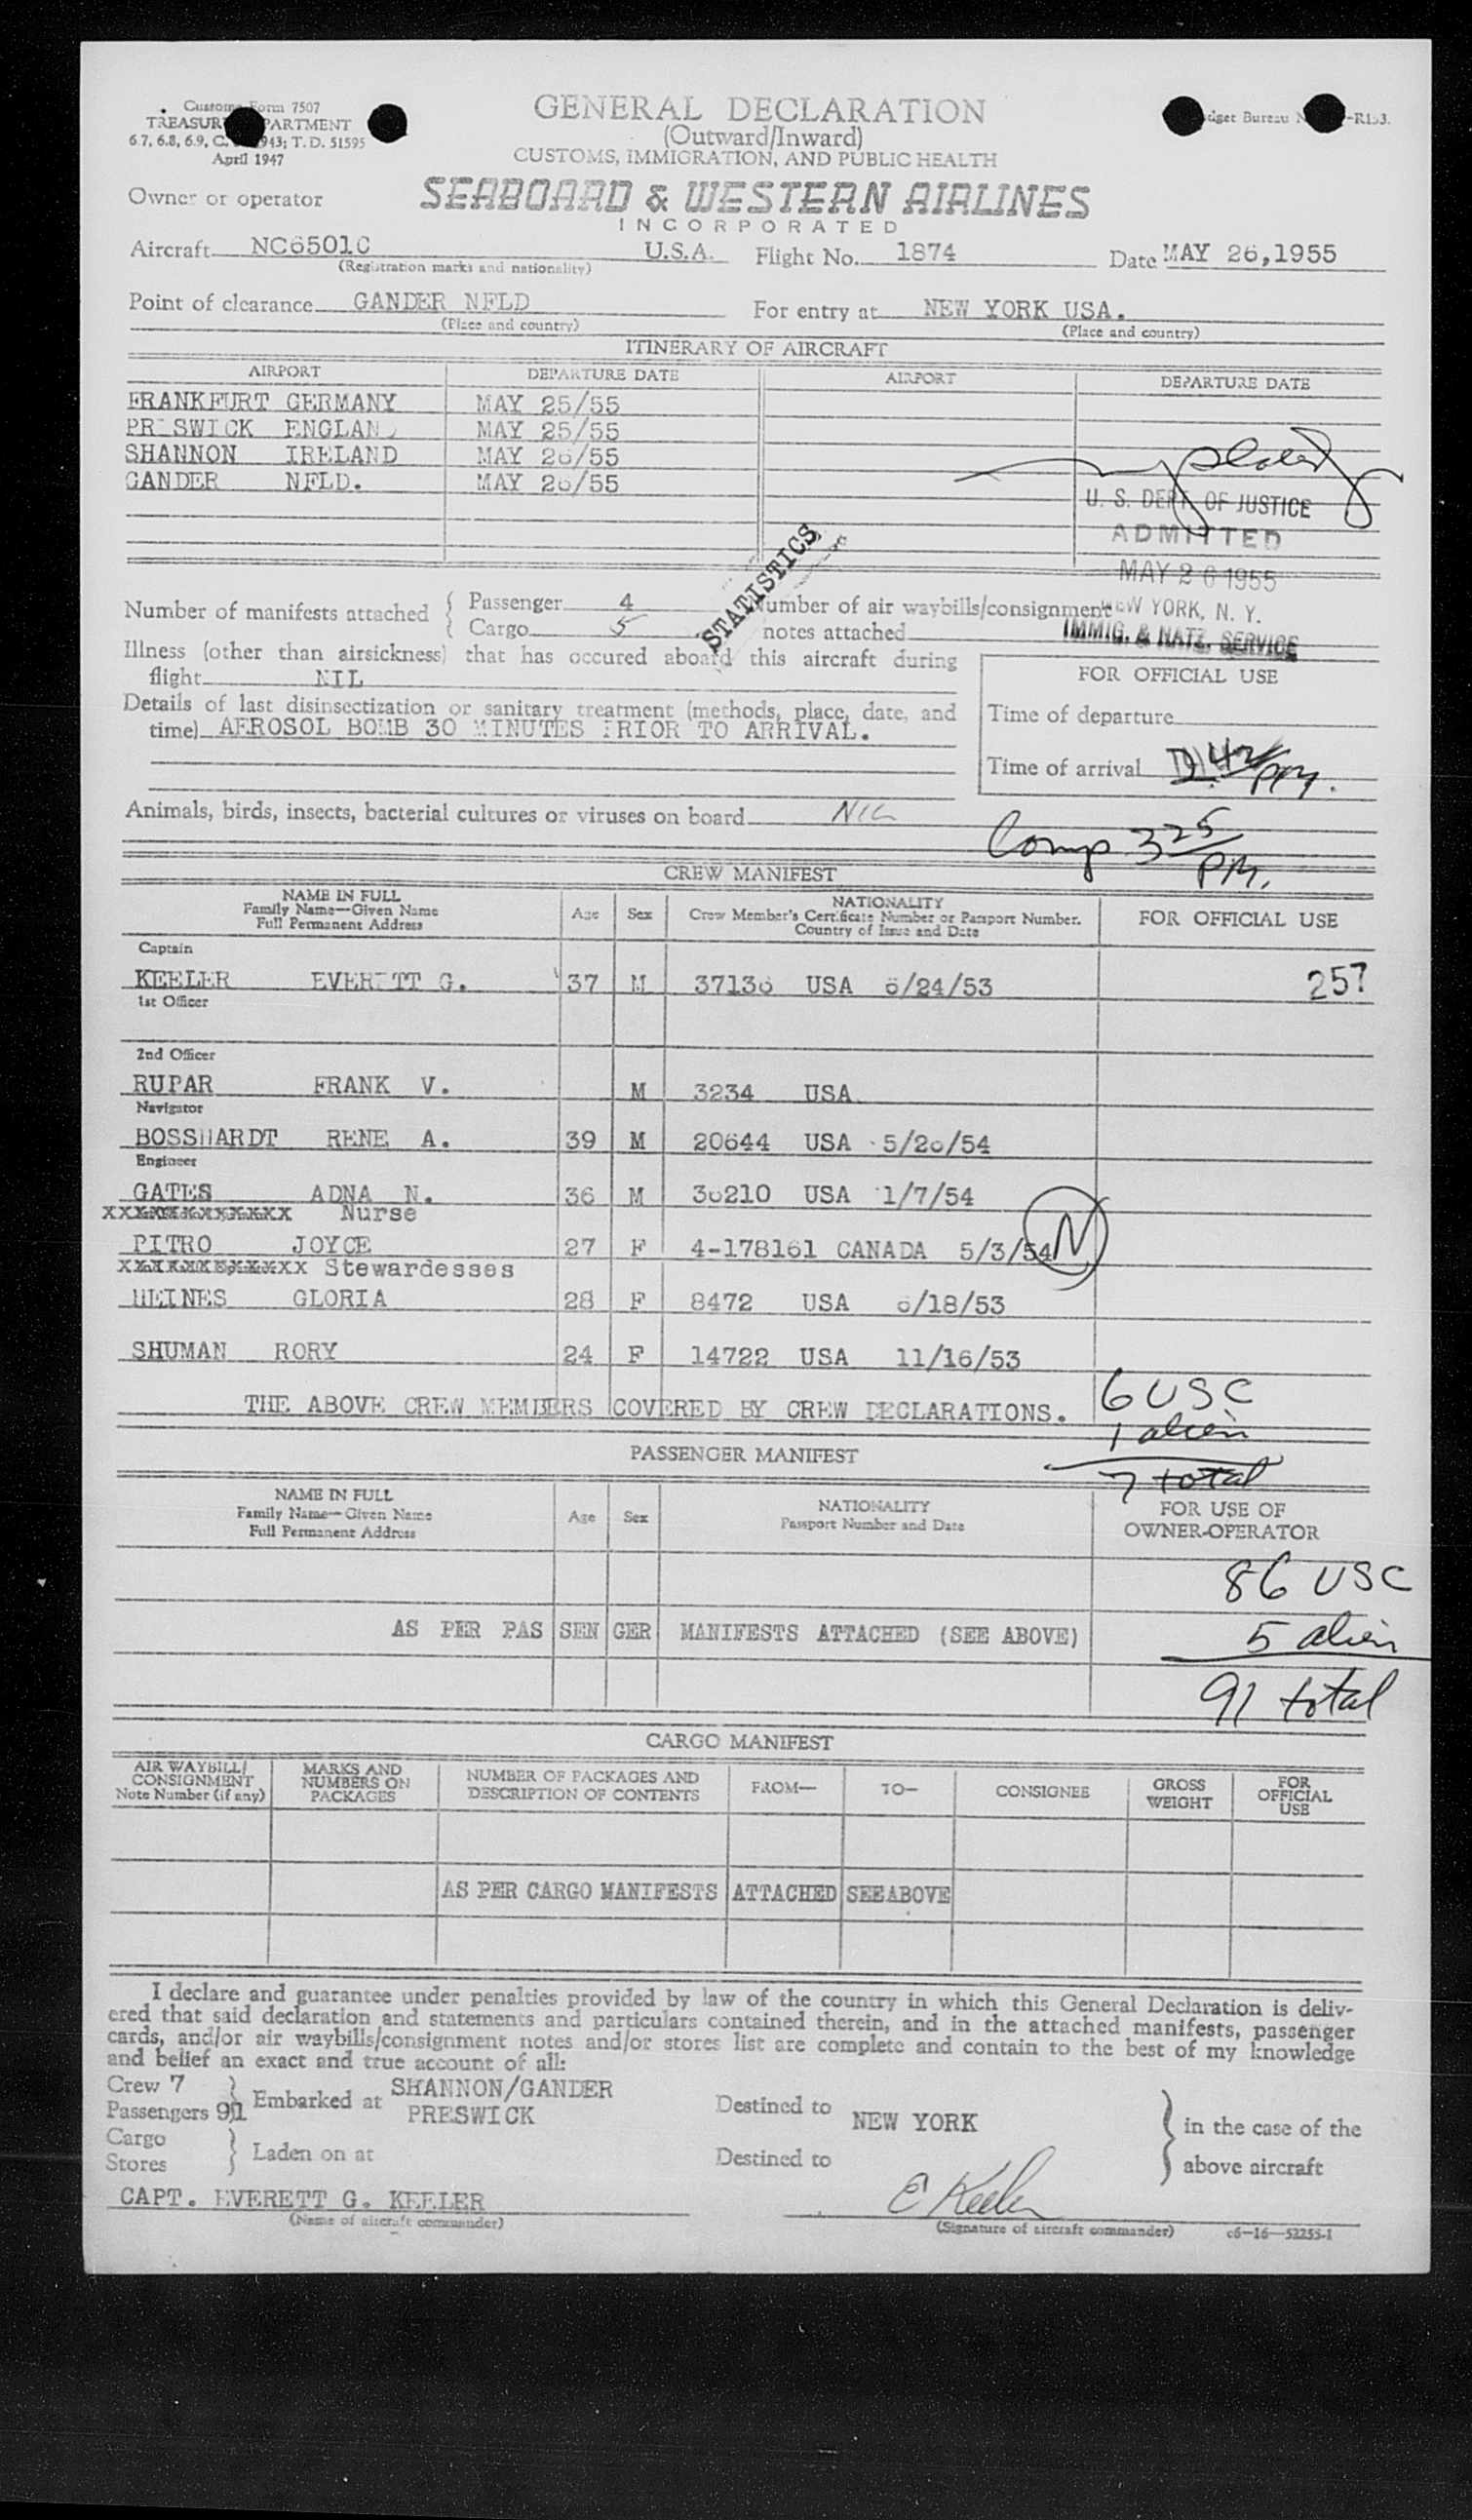 Customs Form 7507
TREASURY DEPARTMENT
6.7, 6.8, 6.9, C. 943; T. D. 51595
April 1947
GENERAL DECLARATION
(Outward/Inward)
CUSTOMS, IMMIGRATION, AND PUBLIC HEALTH
Budget Bureau N -R153.
Owner or operator SEABOARD & WESTERN AIRLINES
INCORPORATED
Aircraft NC6501C U.S.A. Flight No. 1874 Date MAY 26,1955
(Registration marks and nationality)
Point of clearance GANDER NFLD For entry at NEW YORK USA.
(Place and country) (Place and country)
ITINERARY OF AIRCRAFT
AIRPORT DEPARTURE DATE AIRPORT DEPARTURE DATE
FRANKFURT GERMANY MAY 25/55
PR SWICK ENGLAND MAY 25/55
SHANNON IRELAND MAY 26/55
GANDER NFLD. MAY 26/55
U. S. DEPT. OF JUSTICE
ADMITTED
MAY 26 1955
NEW YORK, N. Y.
IMMIG. & NATZ. SERVICE
STATISTICS
Number of manifests attached { Passenger 4 Number of air waybills/consignment
{ Cargo 5 notes attached
Illness (other than airsickness) that has occured aboard this aircraft during
flight NIL
FOR OFFICIAL USE
Details of last disinsectization or sanitary treatment (methods, place, date, and
time) AEROSOL BOMB 30 MINUTES PRIOR TO ARRIVAL.
Time of departure
Time of arrival 42 PM.
Animals, birds, insects, bacterial cultures or viruses on board NIL
Comp 325 PM.
CREW MANIFEST
NAME IN FULL
Family Name—Given Name
Full Permanent Address
Age Sex
NATIONALITY
Crew Member's Certificate Number or Passport Number.
Country of Issue and Date
FOR OFFICIAL USE
Captain
KEELER EVERETT G. 37 M 37136 USA 6/24/53 257
1st Officer
2nd Officer
RUPAR FRANK V. M 3234 USA
Navigator
BOSSHARDT RENE A. 39 M 20644 USA 5/26/54
Engineer
GATES ADNA N. 36 M 36210 USA 1/7/54
XXXXXXXXXXXXX Nurse
PITRO JOYCE 27 F 4-178161 CANADA 5/3/54 N
XXXXXXXXXXXXX Stewardesses
HEINES GLORIA 28 F 8472 USA 6/18/53
SHUMAN RORY 24 F 14722 USA 11/16/53
THE ABOVE CREW MEMBERS COVERED BY CREW DECLARATIONS.
6 USC
1 alien
7 total
PASSENGER MANIFEST
NAME IN FULL
Family Name—Given Name
Full Permanent Address
Age Sex
NATIONALITY
Passport Number and Date
FOR USE OF
OWNER-OPERATOR
86 USC
AS PER PAS SEN GER MANIFESTS ATTACHED (SEE ABOVE) 5 alien
91 total
CARGO MANIFEST
AIR WAYBILL/
CONSIGNMENT
Note Number (if any)
MARKS AND
NUMBERS ON
PACKAGES
NUMBER OF PACKAGES AND
DESCRIPTION OF CONTENTS
FROM— TO— CONSIGNEE
GROSS
WEIGHT
FOR
OFFICIAL
USE
AS PER CARGO MANIFESTS ATTACHED SEEABOVE
I declare and guarantee under penalties provided by law of the country in which this General Declaration is deliv-
ered that said declaration and statements and particulars contained therein, and in the attached manifests, passenger
cards, and/or air waybills/consignment notes and/or stores list are complete and contain to the best of my knowledge
and belief an exact and true account of all:
Crew 7 } Embarked at SHANNON/GANDER Destined to NEW YORK } in the case of the
Passengers 91 PRESWICK
Cargo } Laden on at Destined to above aircraft
Stores
CAPT. EVERETT G. KEELER E Keeler
(Name of aircraft commander) (Signature of aircraft commander) c6—16—52255-1